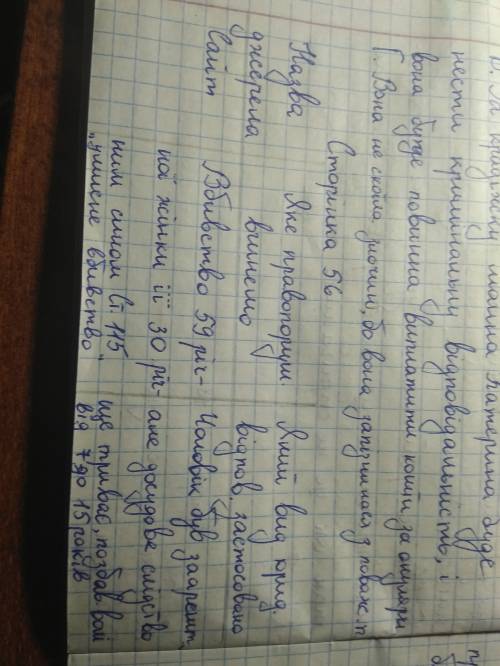 машина Катерина буде
нести кримінальну відповідальність, і
вона буде повинна виплатити кошти за окуляри
Г. Вона не скоїла злочин, бо вона запізнилась з поваж. п
Сторінка 56
Назва
джерела
Яке правопоруш.
вчинено
Який вид юрид.
відпов. застосовано
Сайт
Вбивство 59 річ-
ної жінки її 30 річ-
ним сином ст 115
"умисне вбивство"
Чоловік був заарешт.
але досудове слідство
ще триває, позбав волі
від 7 до 15 років